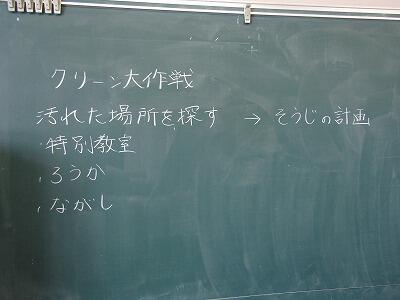 クリーン大作戦
汚れた場所を探す → そうじの計画
・特別教室
・ろうか
・ながし